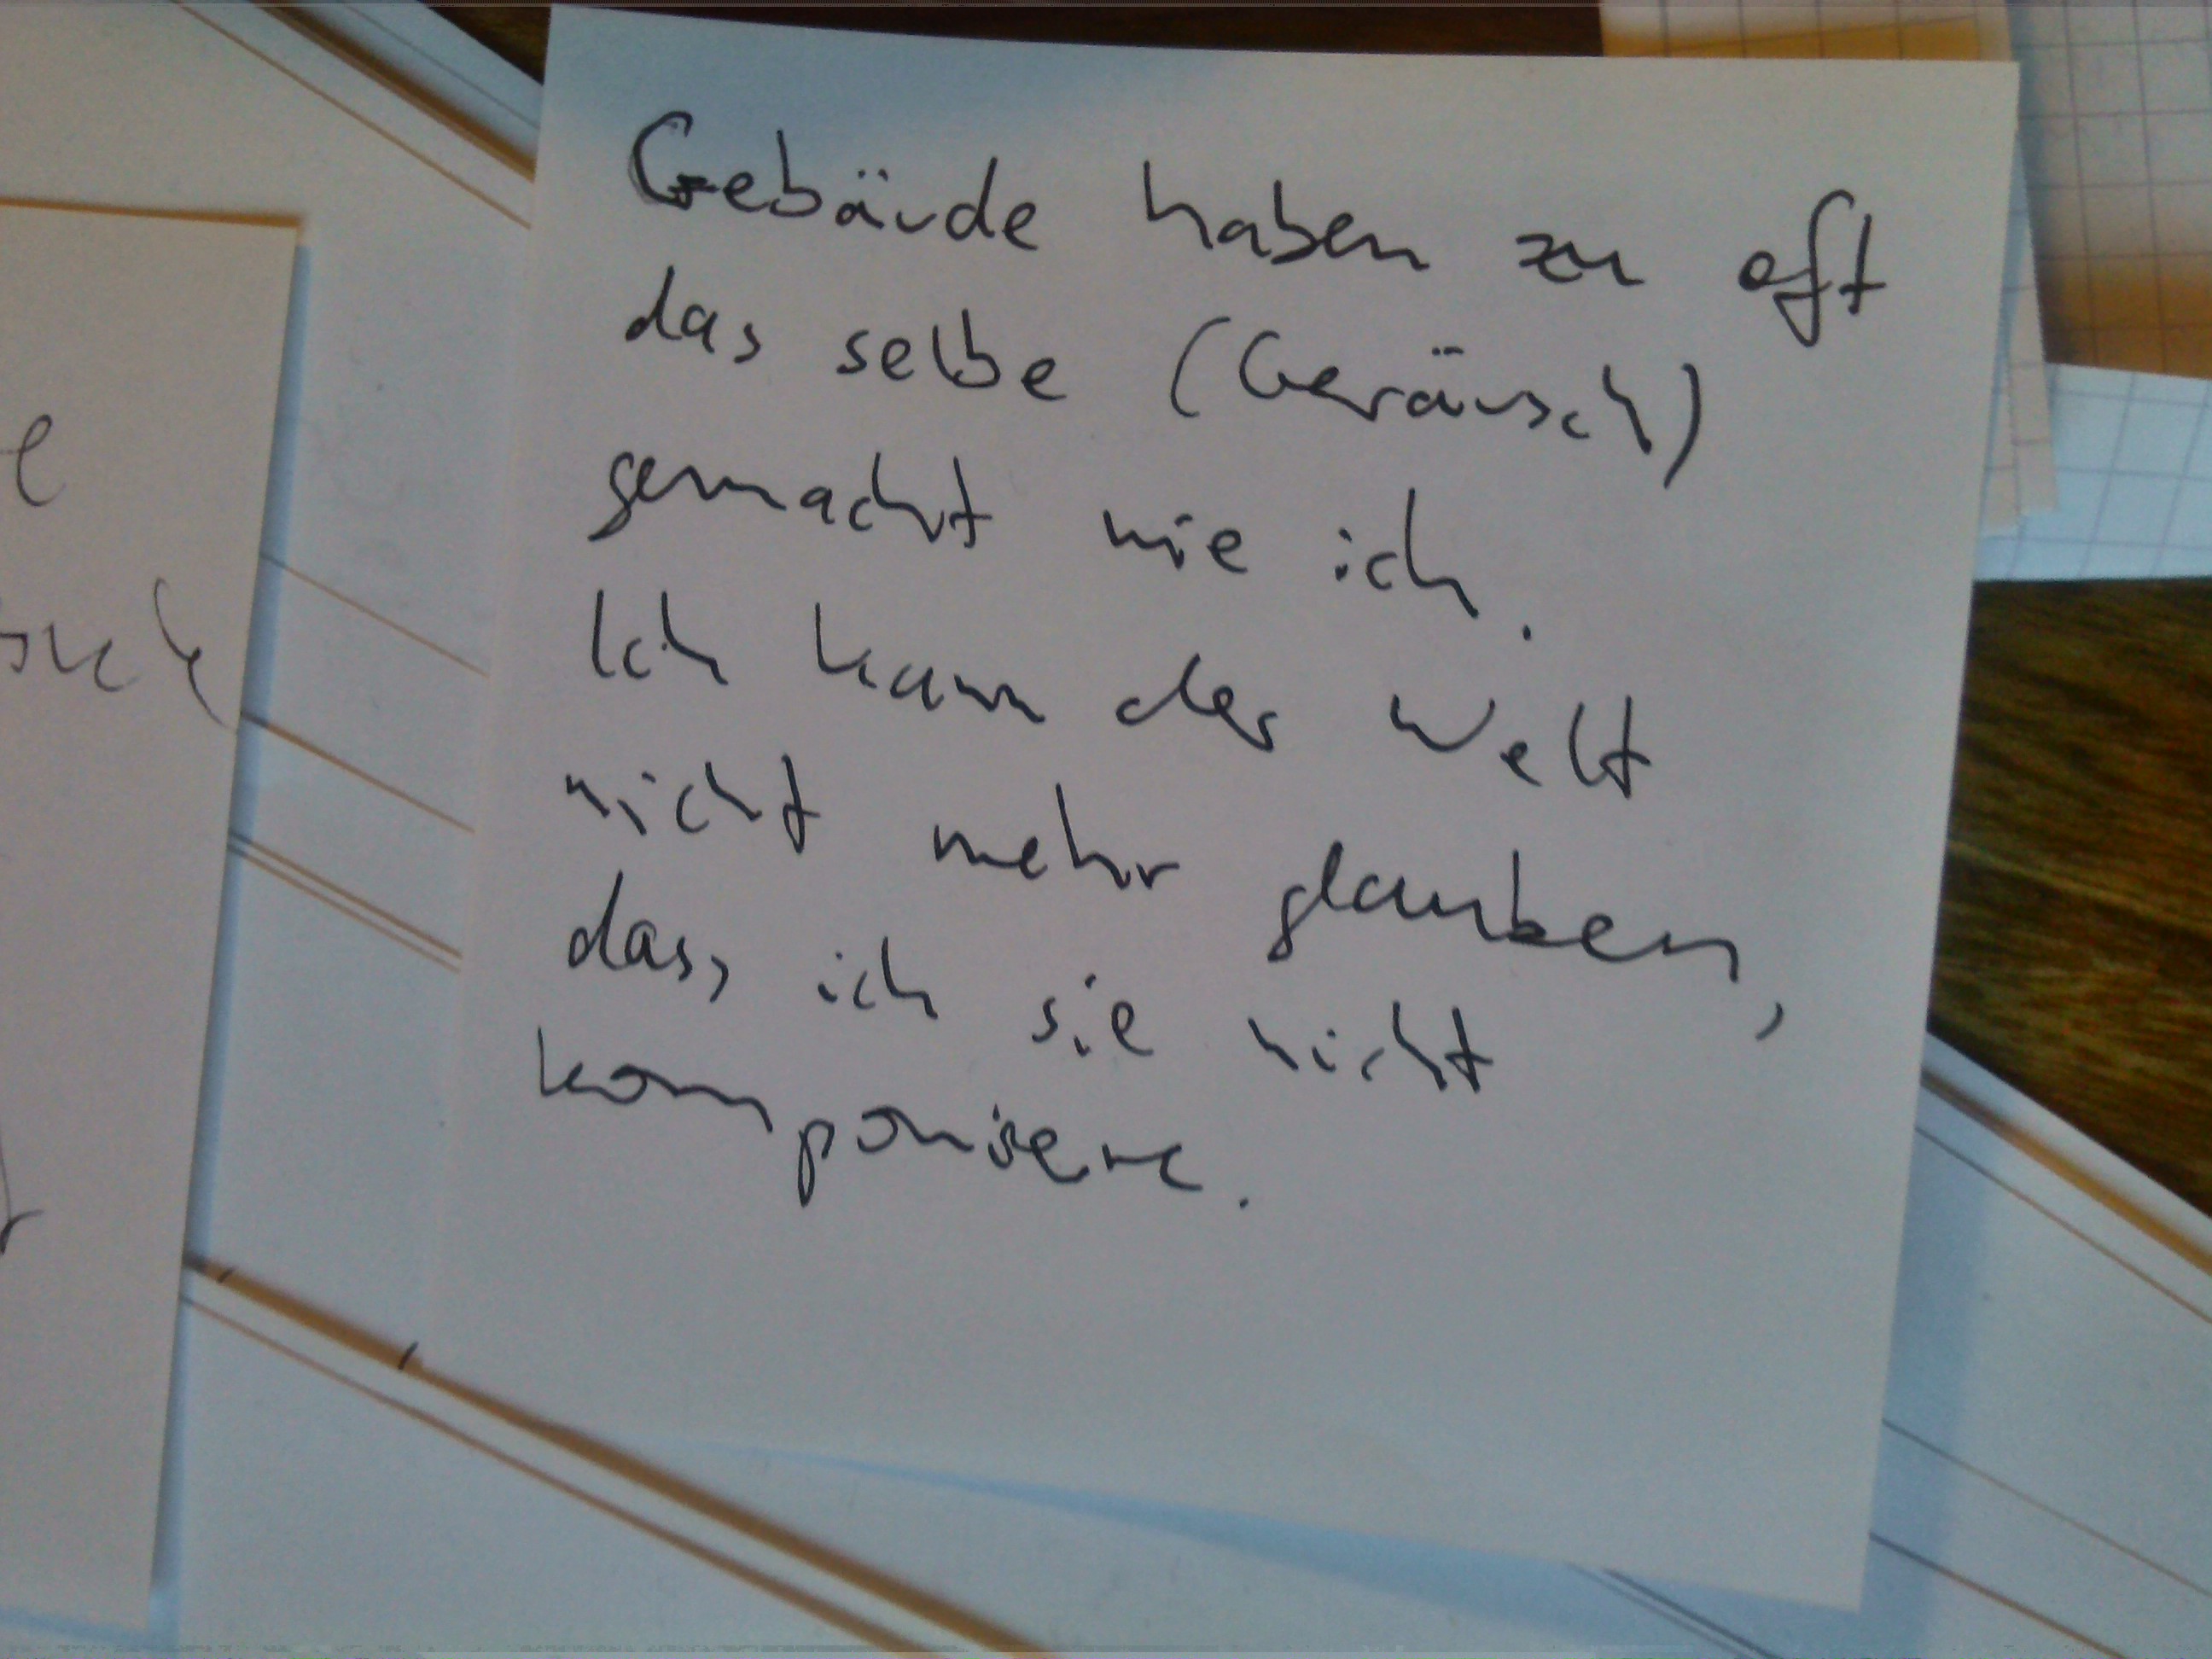 Gebäude haben zu oft
das selbe (Geräusch)
gemacht wie ich.
Ich kann der Welt
nicht mehr glauben,
dass ich sie nicht
komponiere.